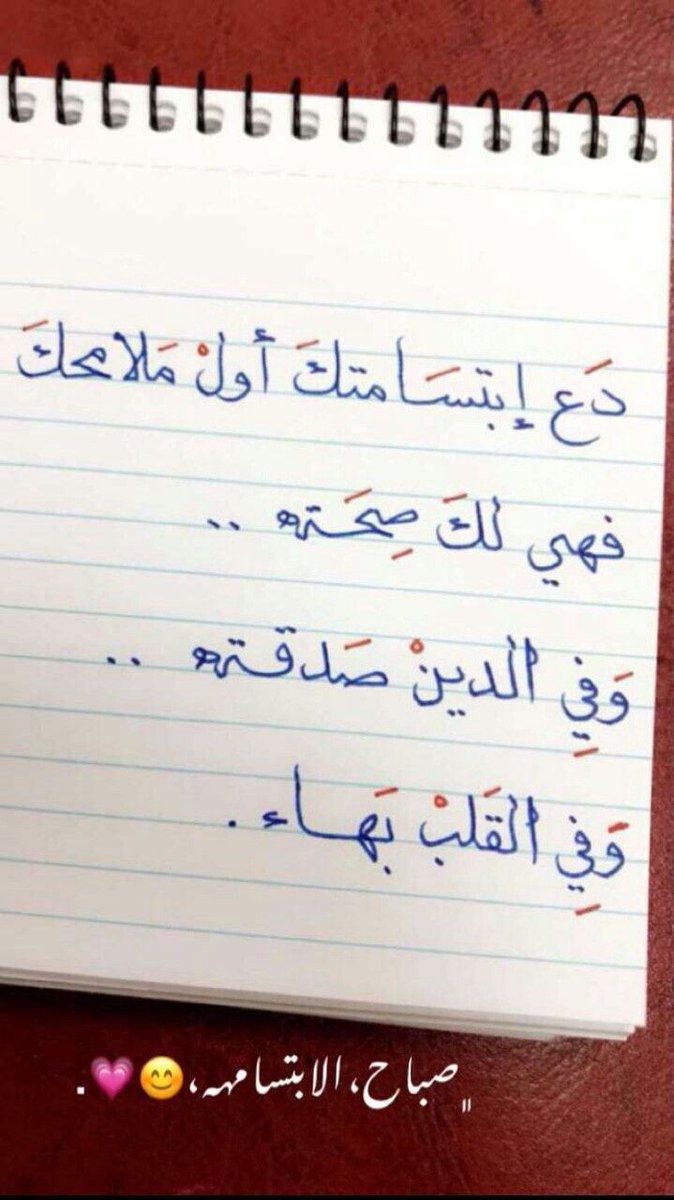 دَع إبتسَامتكَ أولْ مَلامحكَ
فهي لكَ صِحَـته ..
وَفِي الدينْ صَدقته ..
وَفِي القَلبْ بَهـاء .
صباح، الابتسامہہ،😊💗.